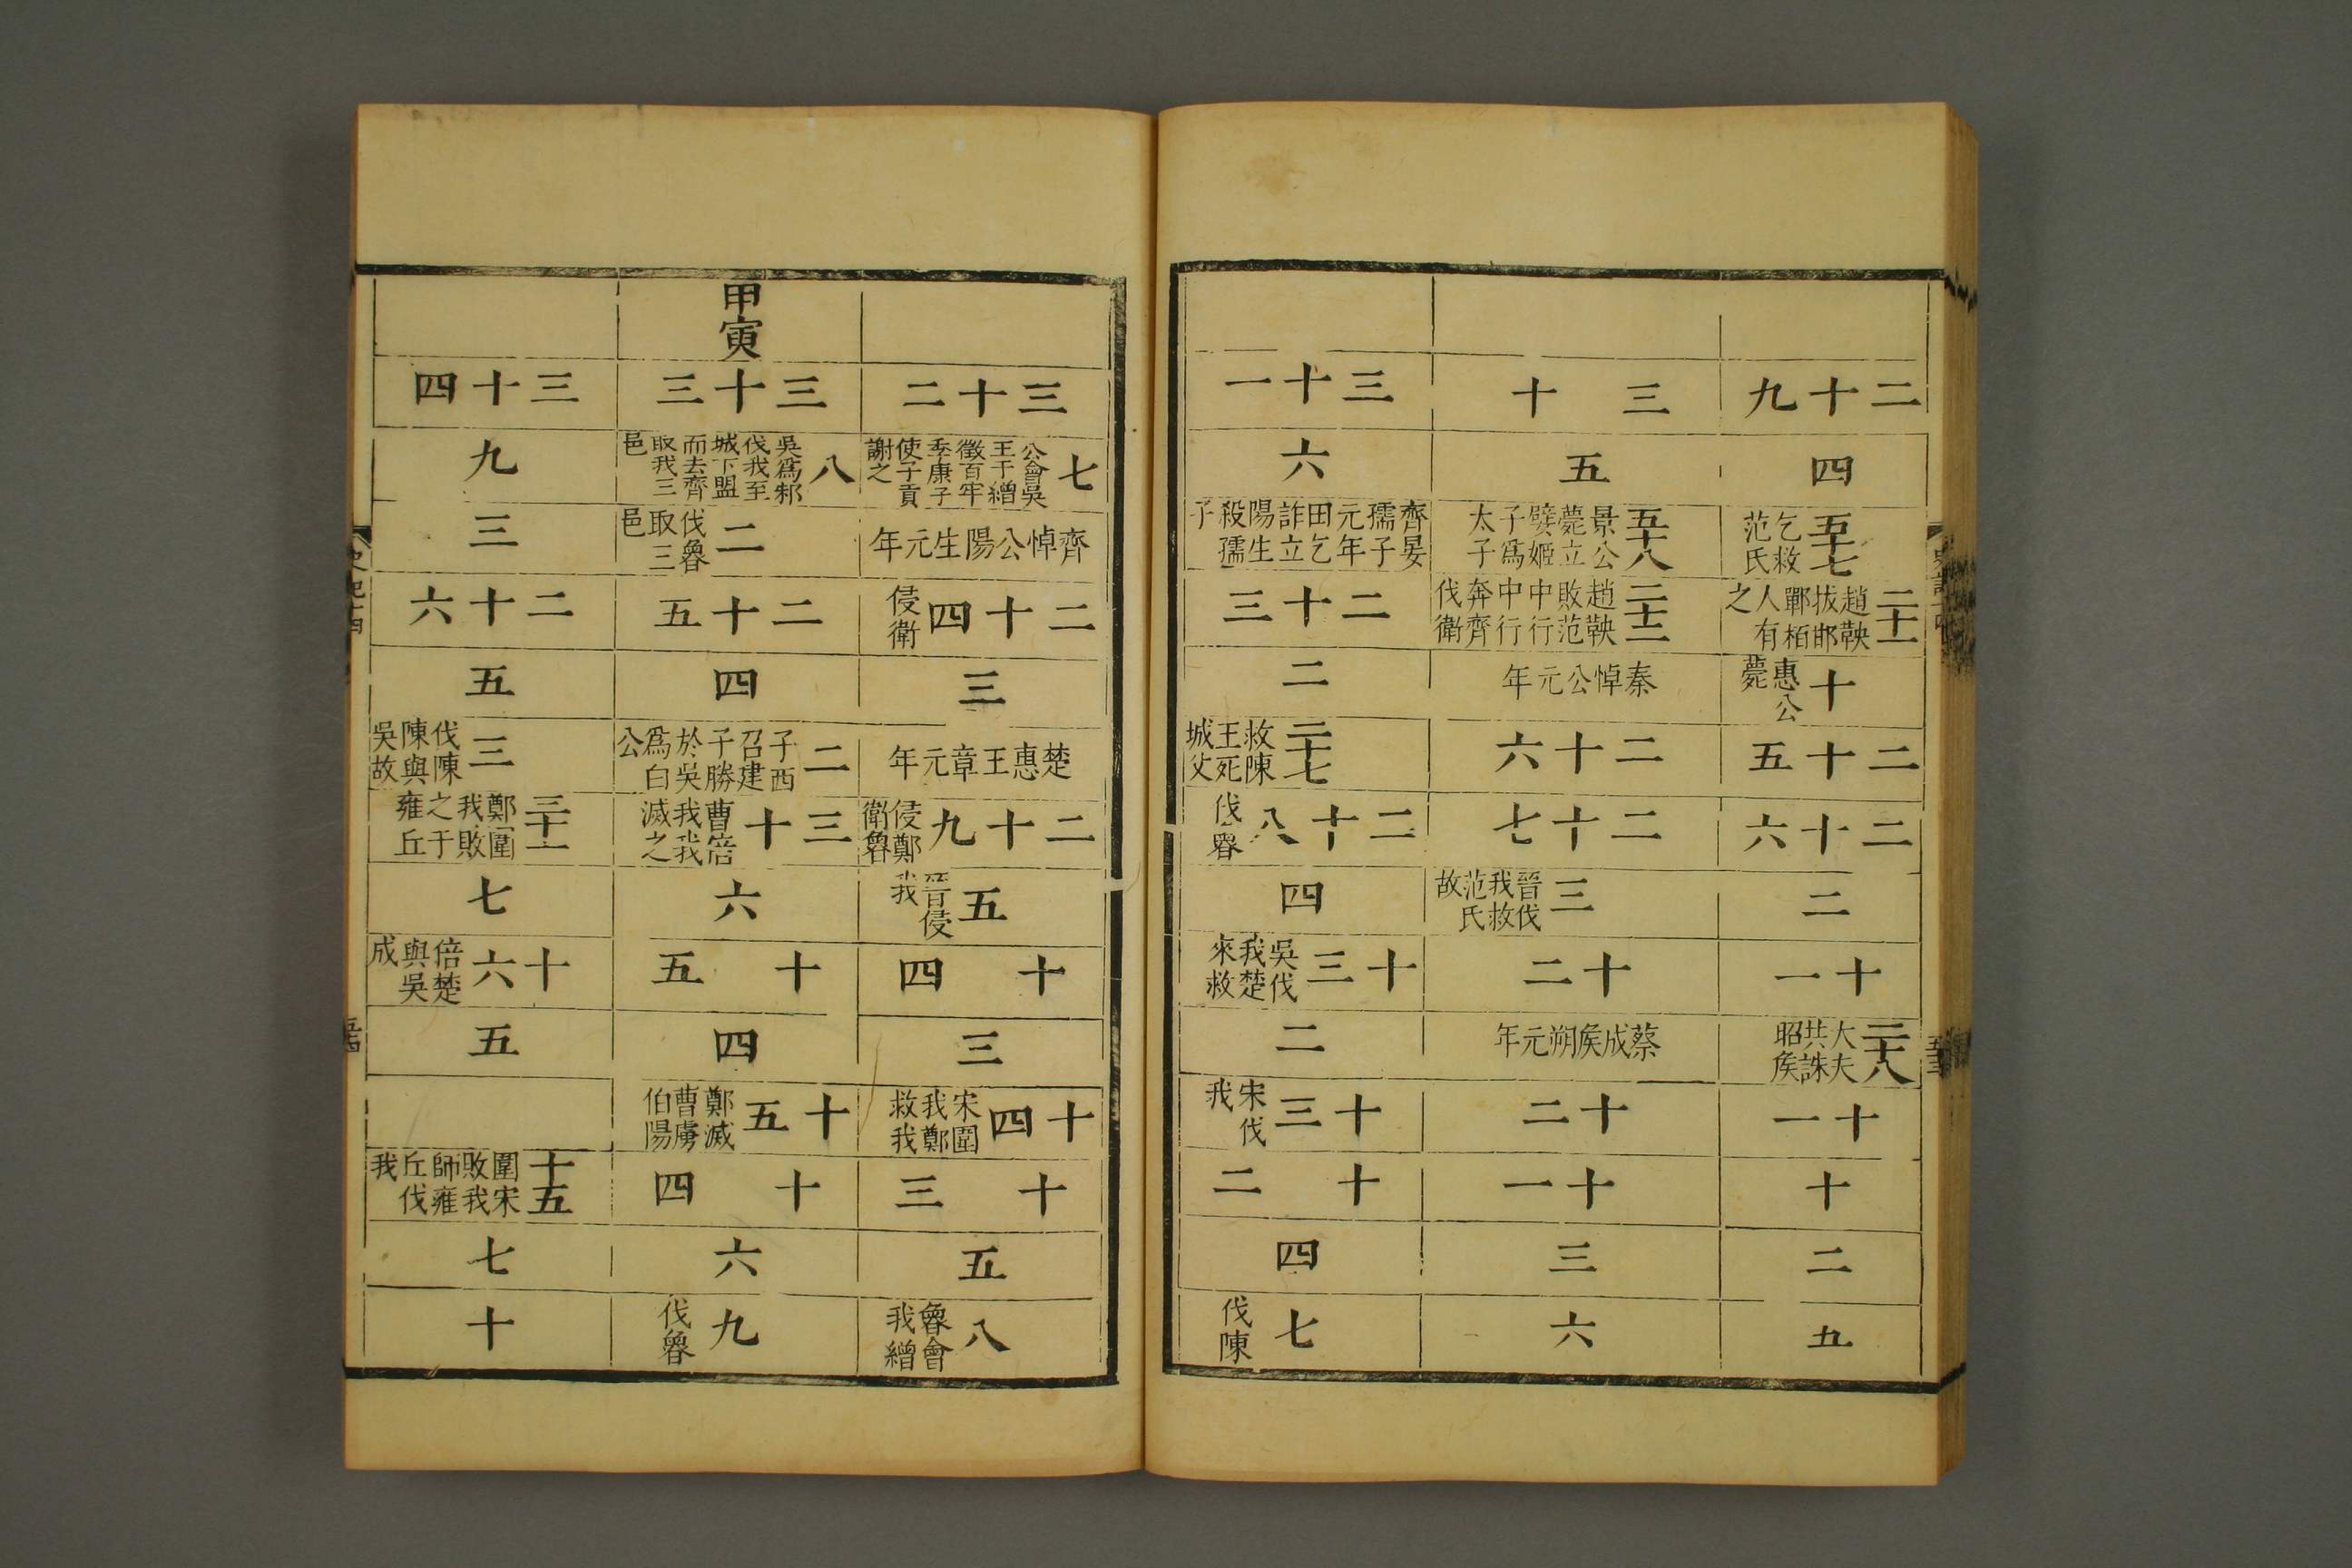 二十九
四
五十七 乞救范氏
二十一 趙鞅拔邯鄲栢人有之
十 惠公薨
二十五
二十六
二
十一
二十八 大夫共誅昭侯
十一
十
二
五
三十
五
五十八 景公薨立嬖姬子為太子
二十二 趙鞅敗范中行中行奔齊伐衛
秦悼公元年
二十六
二十七
三 晉伐我救范氏故
十二
蔡成侯朔元年
十二
十一
三
六
三十一
六
齊晏孺子元年田乞詐立陽生殺孺子
二十三
二
二十七 救陳王死城父
二十八 伐魯
四
十三 吳伐我楚來救
二
十三 宋伐我
十二
四
七 伐陳
三十二
七 公會吳王于繒徵百牢季康子使子貢謝之
齊悼公陽生元年
二十四 侵衛
三
楚惠王章元年
二十九 侵鄭衛魯
五 晉侵我
十四
三
十四 宋圍我鄭救我
十三
五
八 魯會我繒
甲寅
三十三
八 吳為邾伐我至城下盟而去齊取我三邑
二 伐魯取三邑
二十五
四
二 子西召建子勝於吳為白公
三十 曹倍我我滅之
六
十五
四
十五 鄭滅曹虜伯陽
十四
六
九 伐魯
三十四
九
三
二十六
五
三 伐陳陳與吳故
三十一 鄭圍我敗之于雍丘
七
十六 倍楚與吳成
五
十五 圍宋敗我師雍丘伐我
七
十